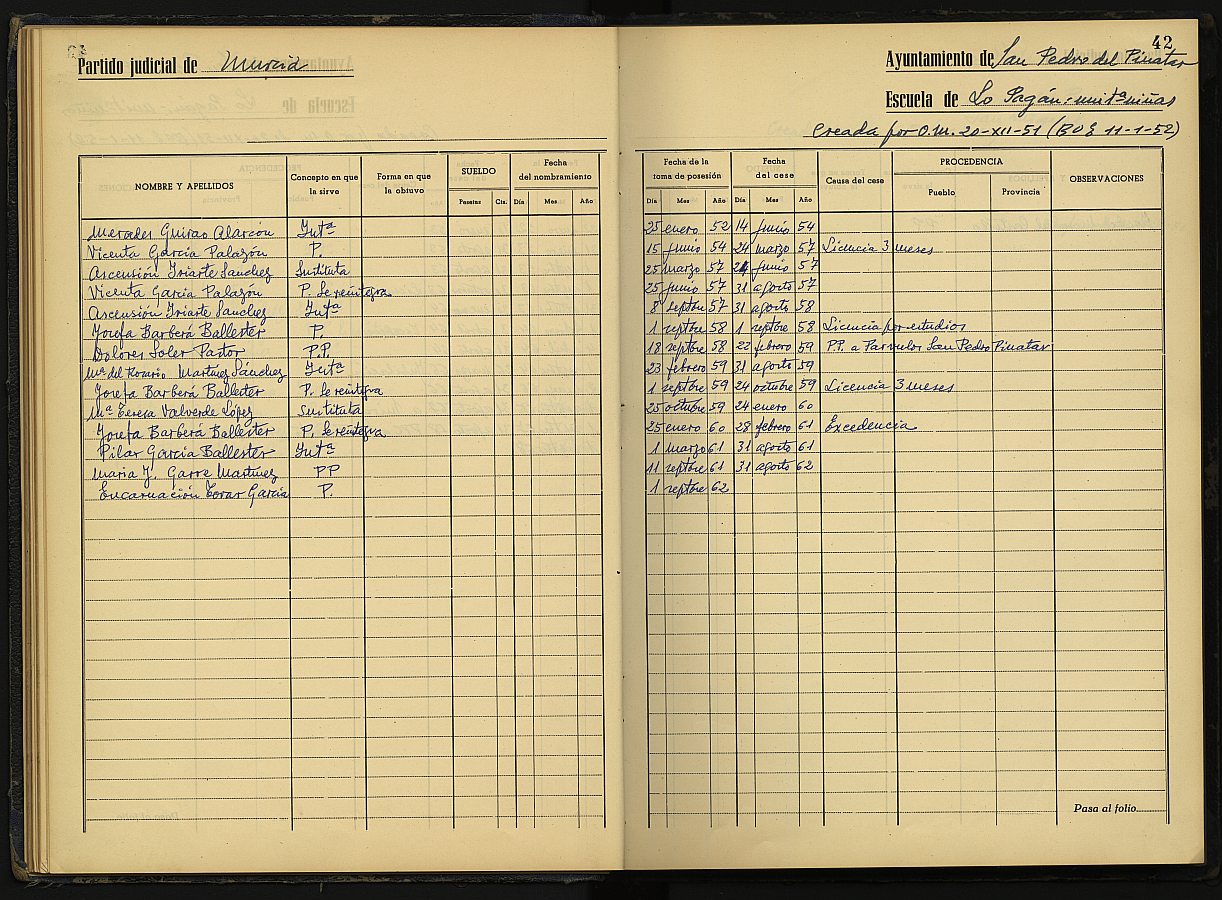 Partido judicial de Murcia
42
Ayuntamiento de San Pedro del Pinatar
Escuela de Lo Pagán: unitª niñas
Creada por O.M. 20-XII-51 (BOE 11-1-52)
NOMBRE Y APELLIDOS Concepto en que la sirve Forma en que la obtuvo SUELDO Pesetas Cts. Fecha del nombramiento Día Mes Año
Fecha de la toma de posesión Día Mes Año Fecha del cese Día Mes Año Causa del cese PROCEDENCIA Pueblo Provincia OBSERVACIONES
Mercedes Guirao Alarcón Intª 25 enero 52 14 junio 54
Vicenta García Palazón P. 15 junio 54 24 marzo 57 Licencia 3 meses
Ascensión Iriarte Sanchez Sustituta 25 marzo 57 24 junio 57
Vicenta Garcia Palazón P. Se reintegra 25 junio 57 31 agosto 57
Ascensión Iriarte Sanchez Intª 8 septbre 57 31 agosto 58
Josefa Barberá Ballester P. 1 septbre 58 1 septbre 58 Licencia por estudios
Dolores Soler Pastor P.P. 18 septbre 58 22 febrero 59 P.P. a Parvulos San Pedro Pinatar
Mª del Rosario Martínez Sánchez Intª 23 febrero 59 31 agosto 59
Josefa Barberá Ballester P. Se reintegra 1 septbre 59 24 octubre 59 Licencia 3 meses
Mª Teresa Valverde López Sustituta 25 octubre 59 24 enero 60
Josefa Barberá Ballester P. Se reintegra 25 enero 60 28 febrero 61 Excedencia
Pilar García Ballester Intª 1 marzo 61 31 agosto 61
Maria J. Garre Martínez PP 11 septbre 61 31 agosto 62
Encarnación Tovar García P. 1 septbre 62
Pasa al folio